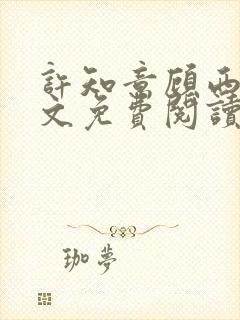 許知意顧西
文免費閱讀
珈夢